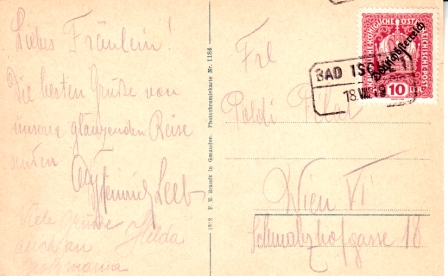 Liebes Fräulein!
Die besten Grüße von
unserer glänzenden Reise
Heinrich Leeb
Viele Grüße Hilda
auch an
Großmama
1912 F. E. Brandt in Gmunden. Photochromiekarte Nr. 1186
Frl
Poldi
Wien VI
Schmalzhofgasse 18
BAD ISCHL
18.VII.19
KAIS. KÖNIGL. ÖSTERREICHISCHE POST
Deutschösterreich
10